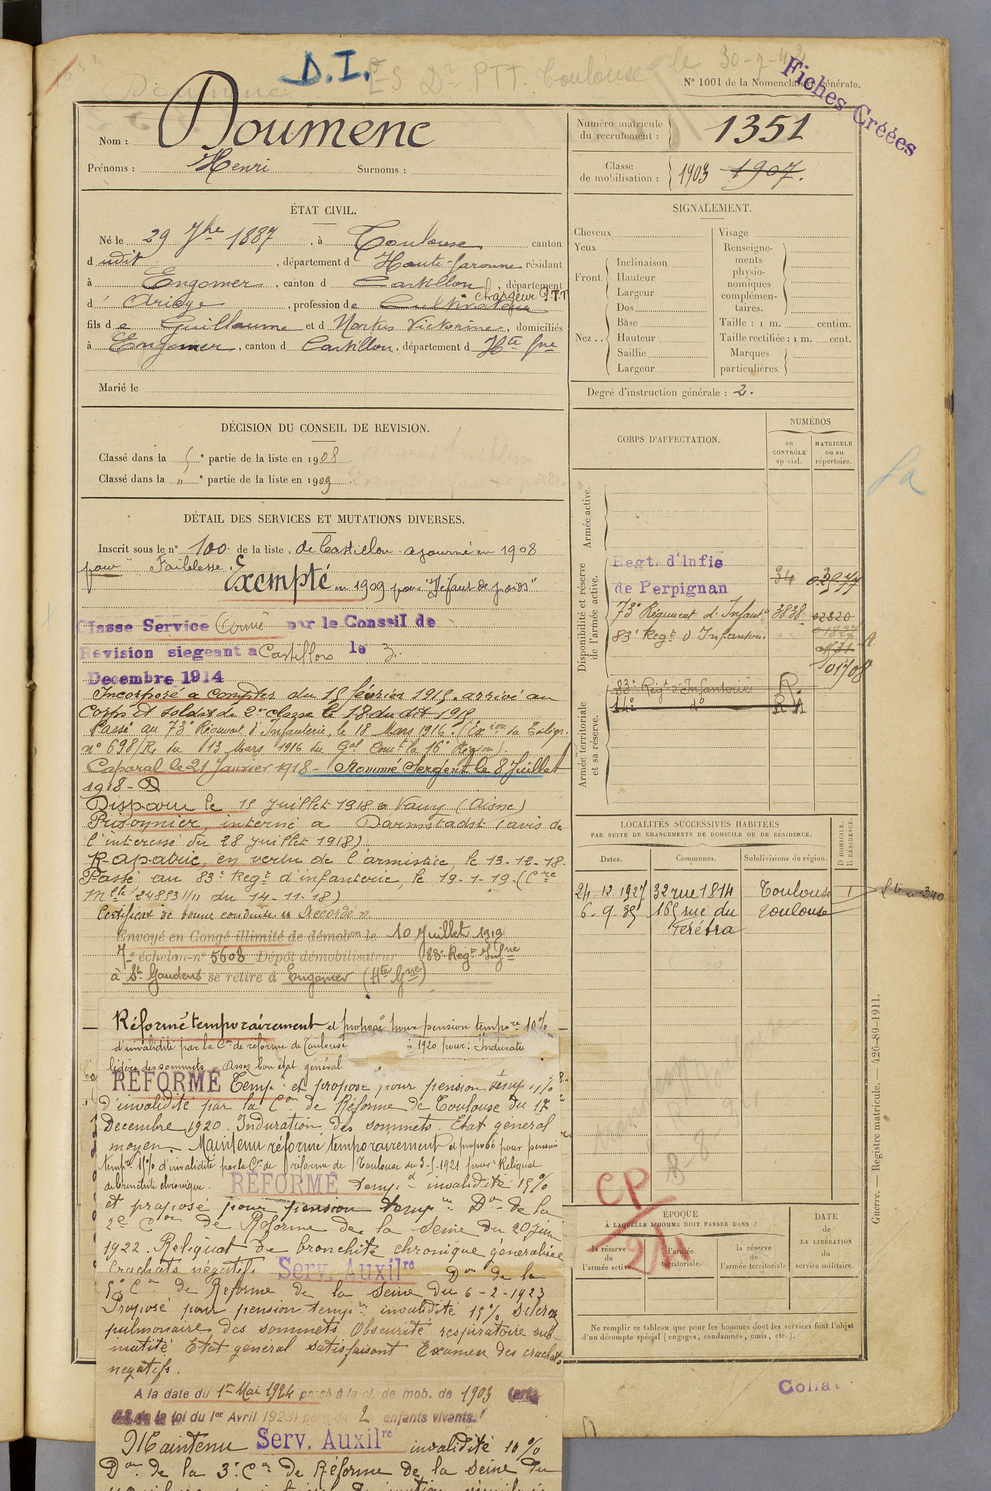 D.I.
ES Dr PTT Toulouse le 30-7-
Doumenc
Nº 1001 de la Nomenclature générale.
Fiches Créées
Nom : Doumenc
Prénoms : Henri Surnoms :
Numéro matricule du recrutement : 1351
Classe de mobilisation : 1903 1907.
ÉTAT CIVIL.
Né le 29 7bre 1887, à Toulouse canton
dudit, département d Haute-Garonne résidant
à Engomer, canton d Castillon, département
chargeur PTT
d'Ariège, profession de Cultivateur
fils de Guillaume et d Nortes Victorine, domiciliés
à Engomer, canton d Castillon, département d Hte Gne
Marié le
SIGNALEMENT.
Cheveux
Yeux
Front. Inclinaison
Hauteur
Largeur
Nez . . Dos
Base
Hauteur
Saillie
Largeur
Visage
Renseignements physionomiques complémentaires.
Taille : 1 m. centim.
Taille rectifiée : 1 m. cent.
Marques particulières.
Degré d'instruction générale : 2.
DÉCISION DU CONSEIL DE REVISION.
Classé dans la 5e partie de la liste en 1908
Classé dans la " e partie de la liste en 1909
DÉTAIL DES SERVICES ET MUTATIONS DIVERSES.
Inscrit sous le nº 100 de la liste de Castillon ajourné en 1908
pour "Faiblesse".
Exempté en 1909 pour "Défaut de poids"
Classe Service Armé par le Conseil de
Révision siégeant à Castillon le 3
Decembre 1914
Incorporé à compter du 15 février 1915, arrivé au
Corps et soldat de 2e classe le 18 du dit 1915
Passé au 73e Régiment d'Infanterie, le 18 Mars 1916.
nº 698/R du 113 Mars 1916 du Gal Comt la 16e Région).
Caporal le 21 Janvier 1918 - Nommé Sergent le 8 Juillet
1918 -
Disparu le 15 juillet 1918 à Vauy (Aisne)
Prisonnier, interné à Darmstadt (avis de
l'intéressé du 28 juillet 1918)
Rapatrié, en vertu de l'armistice, le 13-12-18.
Passé au 83e Regt d'infanterie, le 19-1-19. (Cre
Mlle 24893 1/11 du 14-11-18)
Certificat de bonne conduite "Accordé".
Envoyé en Congé illimité de démobon le 10 Juillet 1919
7e échelon-nº 5603 Dépôt démobilisateur 83e Regt Infrie
à St Gaudens se retire à Engomer (Hte Gne)
Réformé temporairement et proposé pour pension tempre 10%
d'invalidité par la Con de réforme de Toulouse à 1920 pour : Induration
légère des sommets. Assez bon état général
RÉFORMÉ Tempt et proposé pour pension
d'invalidité par la Con de Réforme de Toulouse du 17
Decembre 1920. Induration des sommets. Etat general
moyen. Maintenu réformé temporairement et proposé pour pension
tempre 15% d'invalidité par la Con de réforme de Toulouse du 3-5-1921 pour : Reliquat
de bronchite chronique.
RÉFORMÉ temp. invalidité 15%
et proposé pour pension tempre Don de la
2e Con de Réforme de la Seine du 20 juin
1922. Reliquat de bronchite chronique généralisée
Crachats négatifs
Serv. Auxilre Don de la
5e Con de Réforme de la Seine du 6-2-1923
Proposé pour pension tempre invalidité 15% Sclérose
pulmonaire des sommets Obscurité respiratoire sub-
matité Etat general satisfaisant Examen des crachats
negatifs.
A la date du 1er Mai 1924 passé à la cl. de mob. de 1903 (art.
58 de la loi du 1er Avril 1923) père de 2 enfants vivants.
Maintenu Serv. Auxilre invalidité 10%
Don de la 3e Con de Réforme de la Seine du
CORPS D'AFFECTATION.
NUMÉROS
au CONTRÔLE spécial.
MATRICULE ou au répertoire.
Armée active.
Disponibilité et réserve de l'armée active.
Regt. d'Infie de Perpignan 34
73e Régiment d'Infant 3838 02820
83e Regt d'Infanterie
01708
Armée territoriale et sa réserve.
83e Régt d'Infanterie
14e do
LOCALITÉS SUCCESSIVES HABITÉES
PAR SUITE DE CHANGEMENTS DE DOMICILE OU DE RÉSIDENCE.
Dates. Communes. Subdivisions de région.
D DOMICILE. R RÉSIDENCE.
24.12.1927 32 rue 1814 Toulouse
6.9.35 165 rue du Férétra Toulouse
CP
ÉPOQUE
À LAQUELLE L'HOMME DOIT PASSER DANS :
la réserve de l'armée active
l'armée territoriale.
la réserve de l'armée territoriale
DATE de LA LIBÉRATION du service militaire.
Ne remplir ce tableau que pour les hommes dont les services font l'objet
d'un décompte spécial (engagés, condamnés, omis, etc.).
Guerre. — Registre matricule. — 426-89-1911.